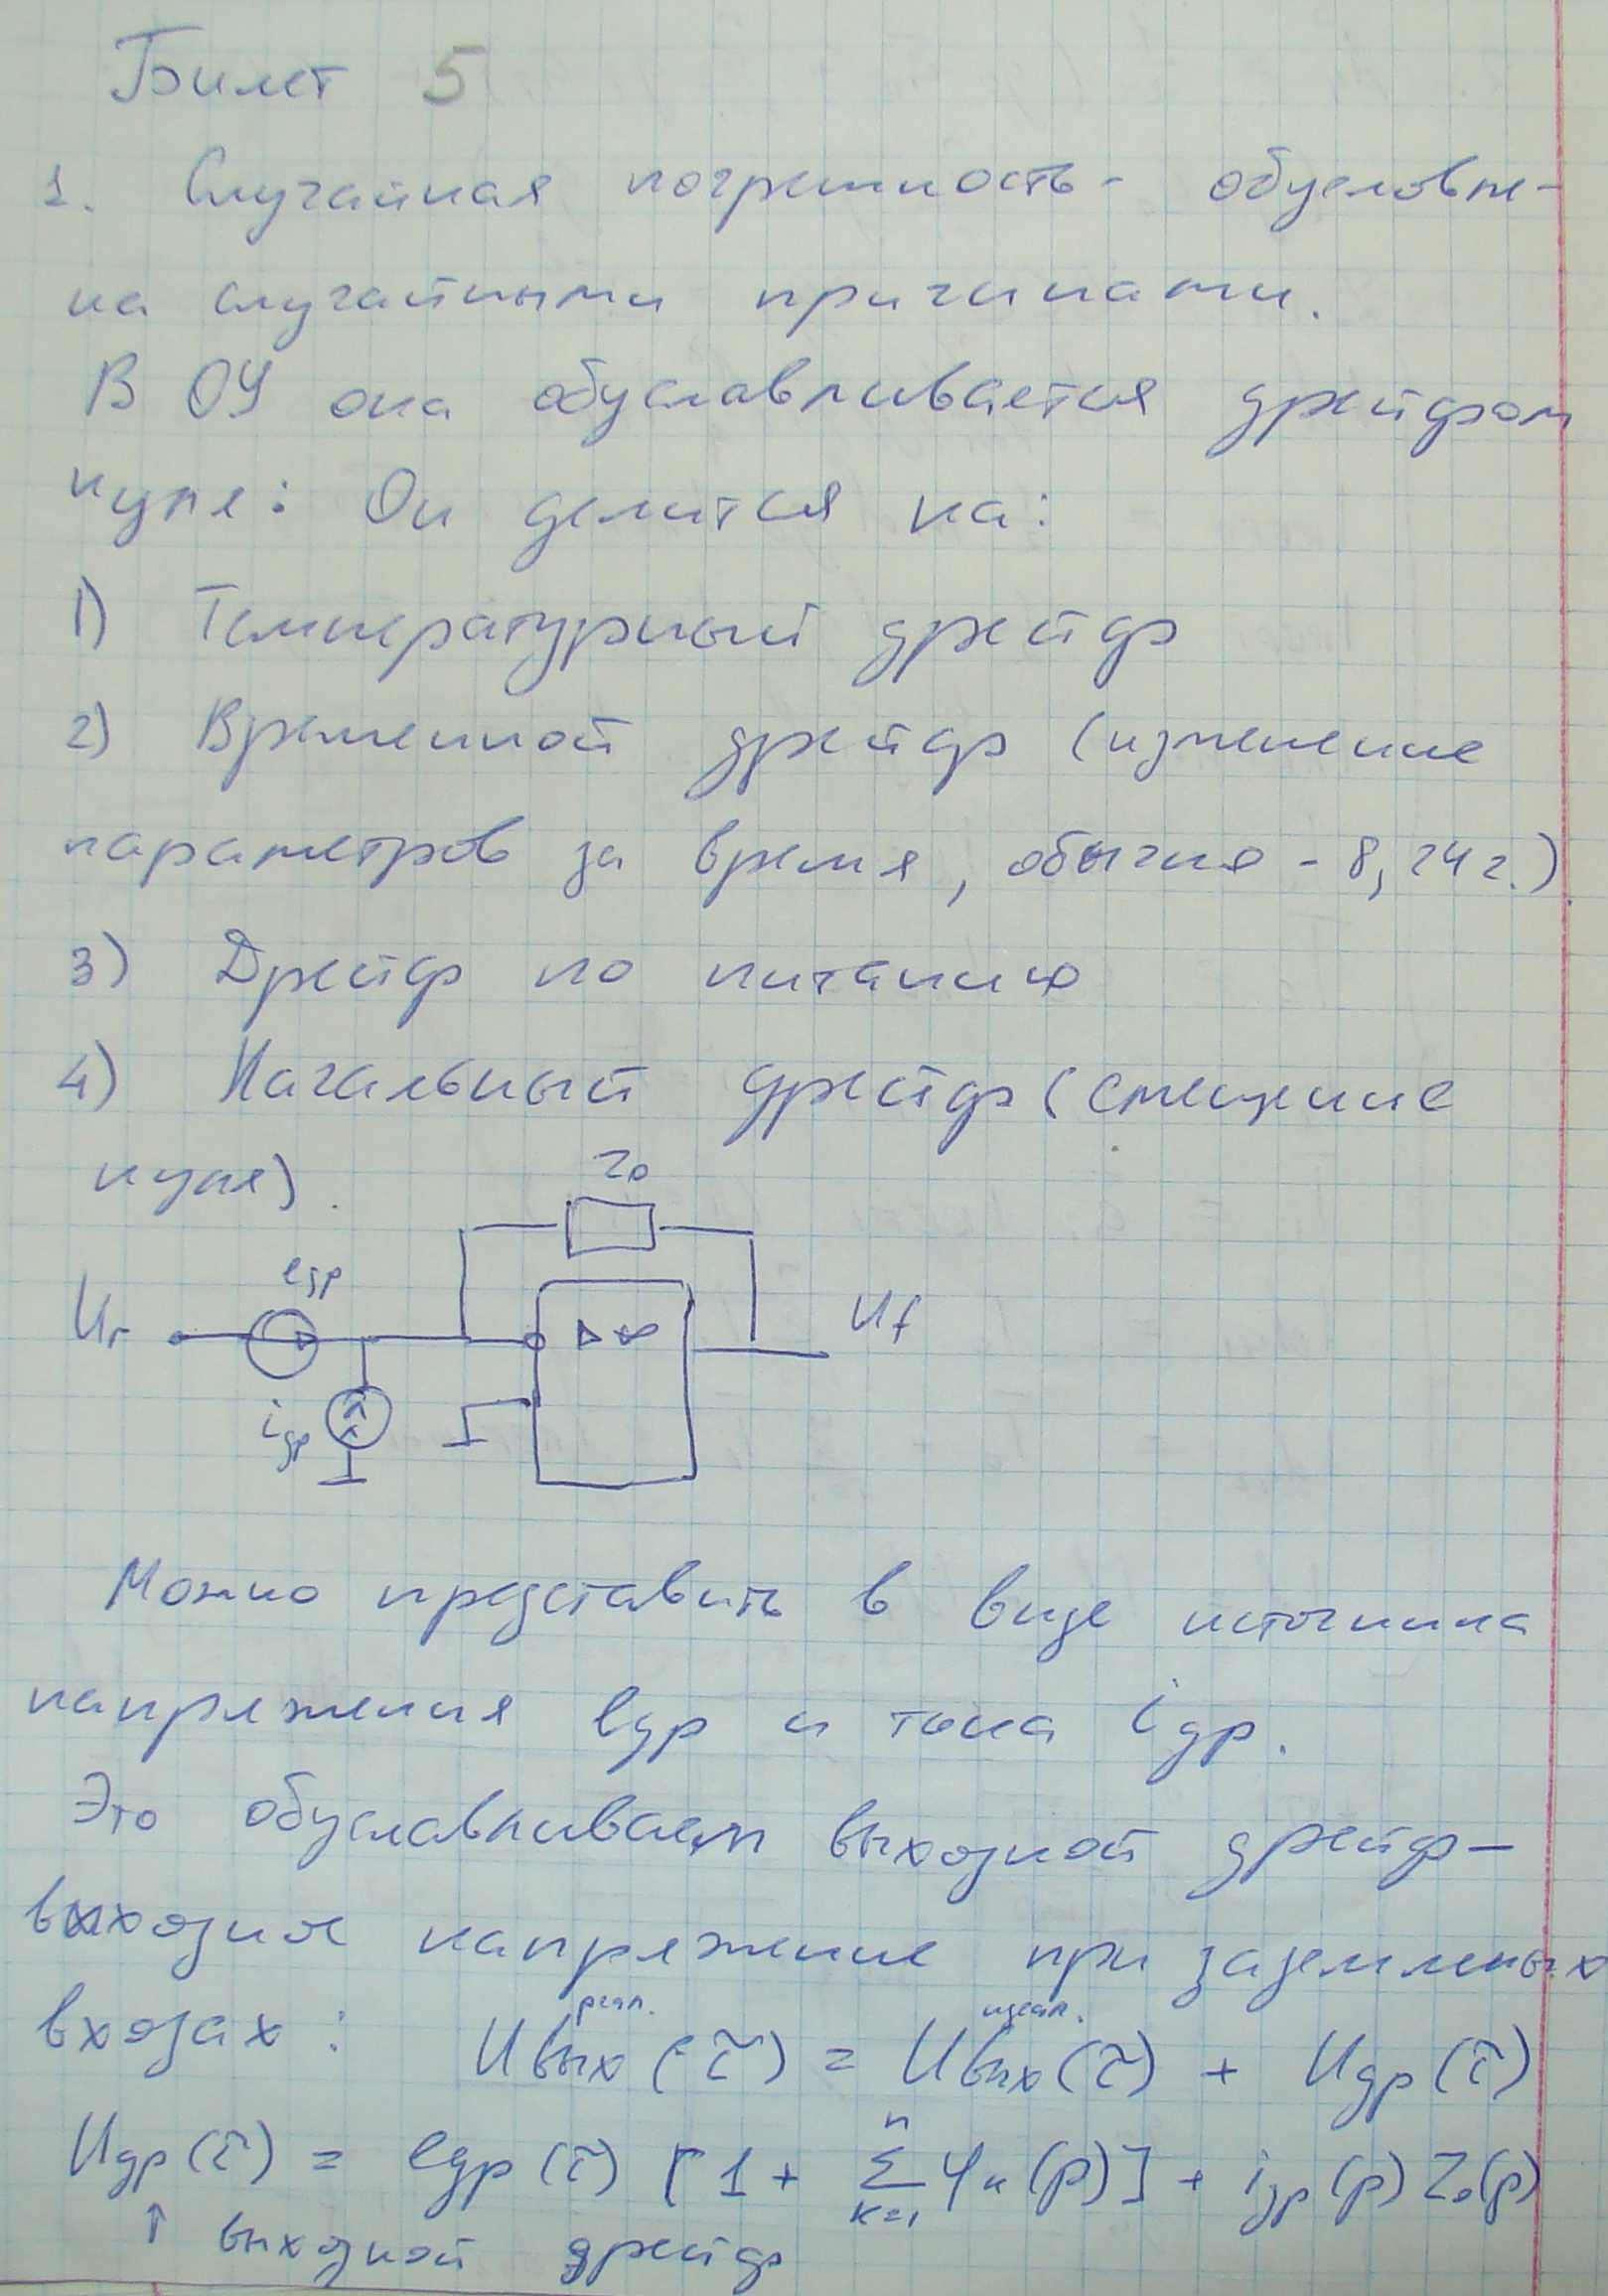 Билет 5
1. Случайная погрешность - обусловле-
на случайными причинами.
В ОУ она обуславливается дрейфом
нуля: Он делится на:
1) Температурный дрейф
2) Временной дрейф (изменение
параметров за время, обычно - 8, 24 ч.)
3) Дрейф по питанию
4) Начальный дрейф (смещение
нуля).
Z₀
eдр
Uг
iдр
▷∞
Uf
Можно представить в виде источника
напряжения eдр и тока iдр.
Это обуславливает выходной дрейф -
выходное напряжение при заземленных
входах: Uвых реал. (τ) = Uвых идеал. (τ) + Uдр (τ)
Uдр (τ) = eдр (τ) [1 + Σ ⁿ ₖ₌₁ φₖ (p)] + iдр (p) Z₀(p)
↑ выходной дрейф